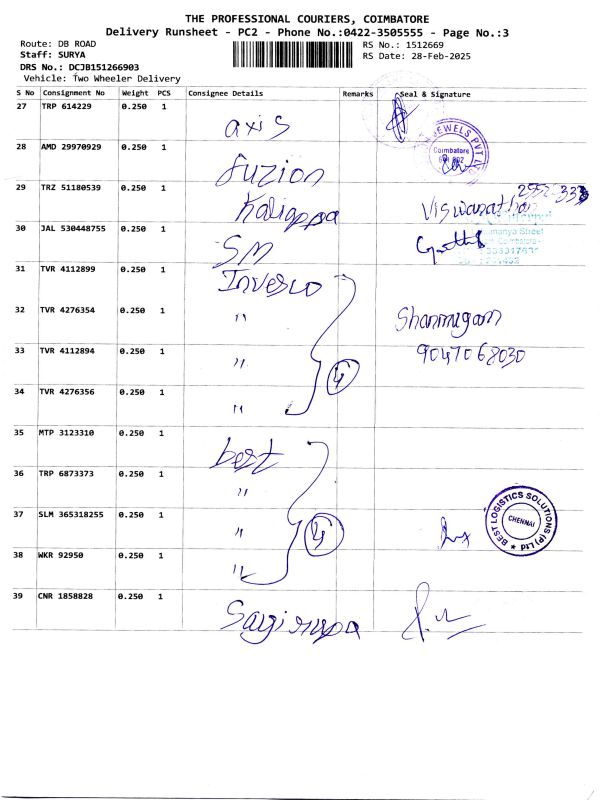 THE PROFESSIONAL COURIERS, COIMBATORE
Delivery Runsheet - PC2 - Phone No.:0422-3505555 - Page No.:3
Route: DB ROAD
RS No.: 1512669
Staff: SURYA
RS Date: 28-Feb-2025
DRS No.: DCJB151266903
Vehicle: Two Wheeler Delivery
S No Consignment No Weight PCS Consignee Details Remarks Seal & Signature
27 TRP 614229 0.250 1 axis
28 AMD 29970929 0.250 1 fuzion JEWELS PVT Coimbatore
29 TRZ 51180539 0.250 1 Kaliappa Viswanathan
30 JAL 530448755 0.250 1 SM Street Coimbatore-
31 TVR 4112899 0.250 1 Invesco
32 TVR 4276354 0.250 1 " Shanmugam
33 TVR 4112894 0.250 1 " 4 9047068030
34 TVR 4276356 0.250 1 "
35 MTP 3123310 0.250 1 best
36 TRP 6873373 0.250 1 "
37 SLM 365318255 0.250 1 " 4 BEST LOGISTICS SOLUTIONS (P) Ltd ★ CHENNAI
38 WKR 92950 0.250 1 "
39 CNR 1858828 0.250 1